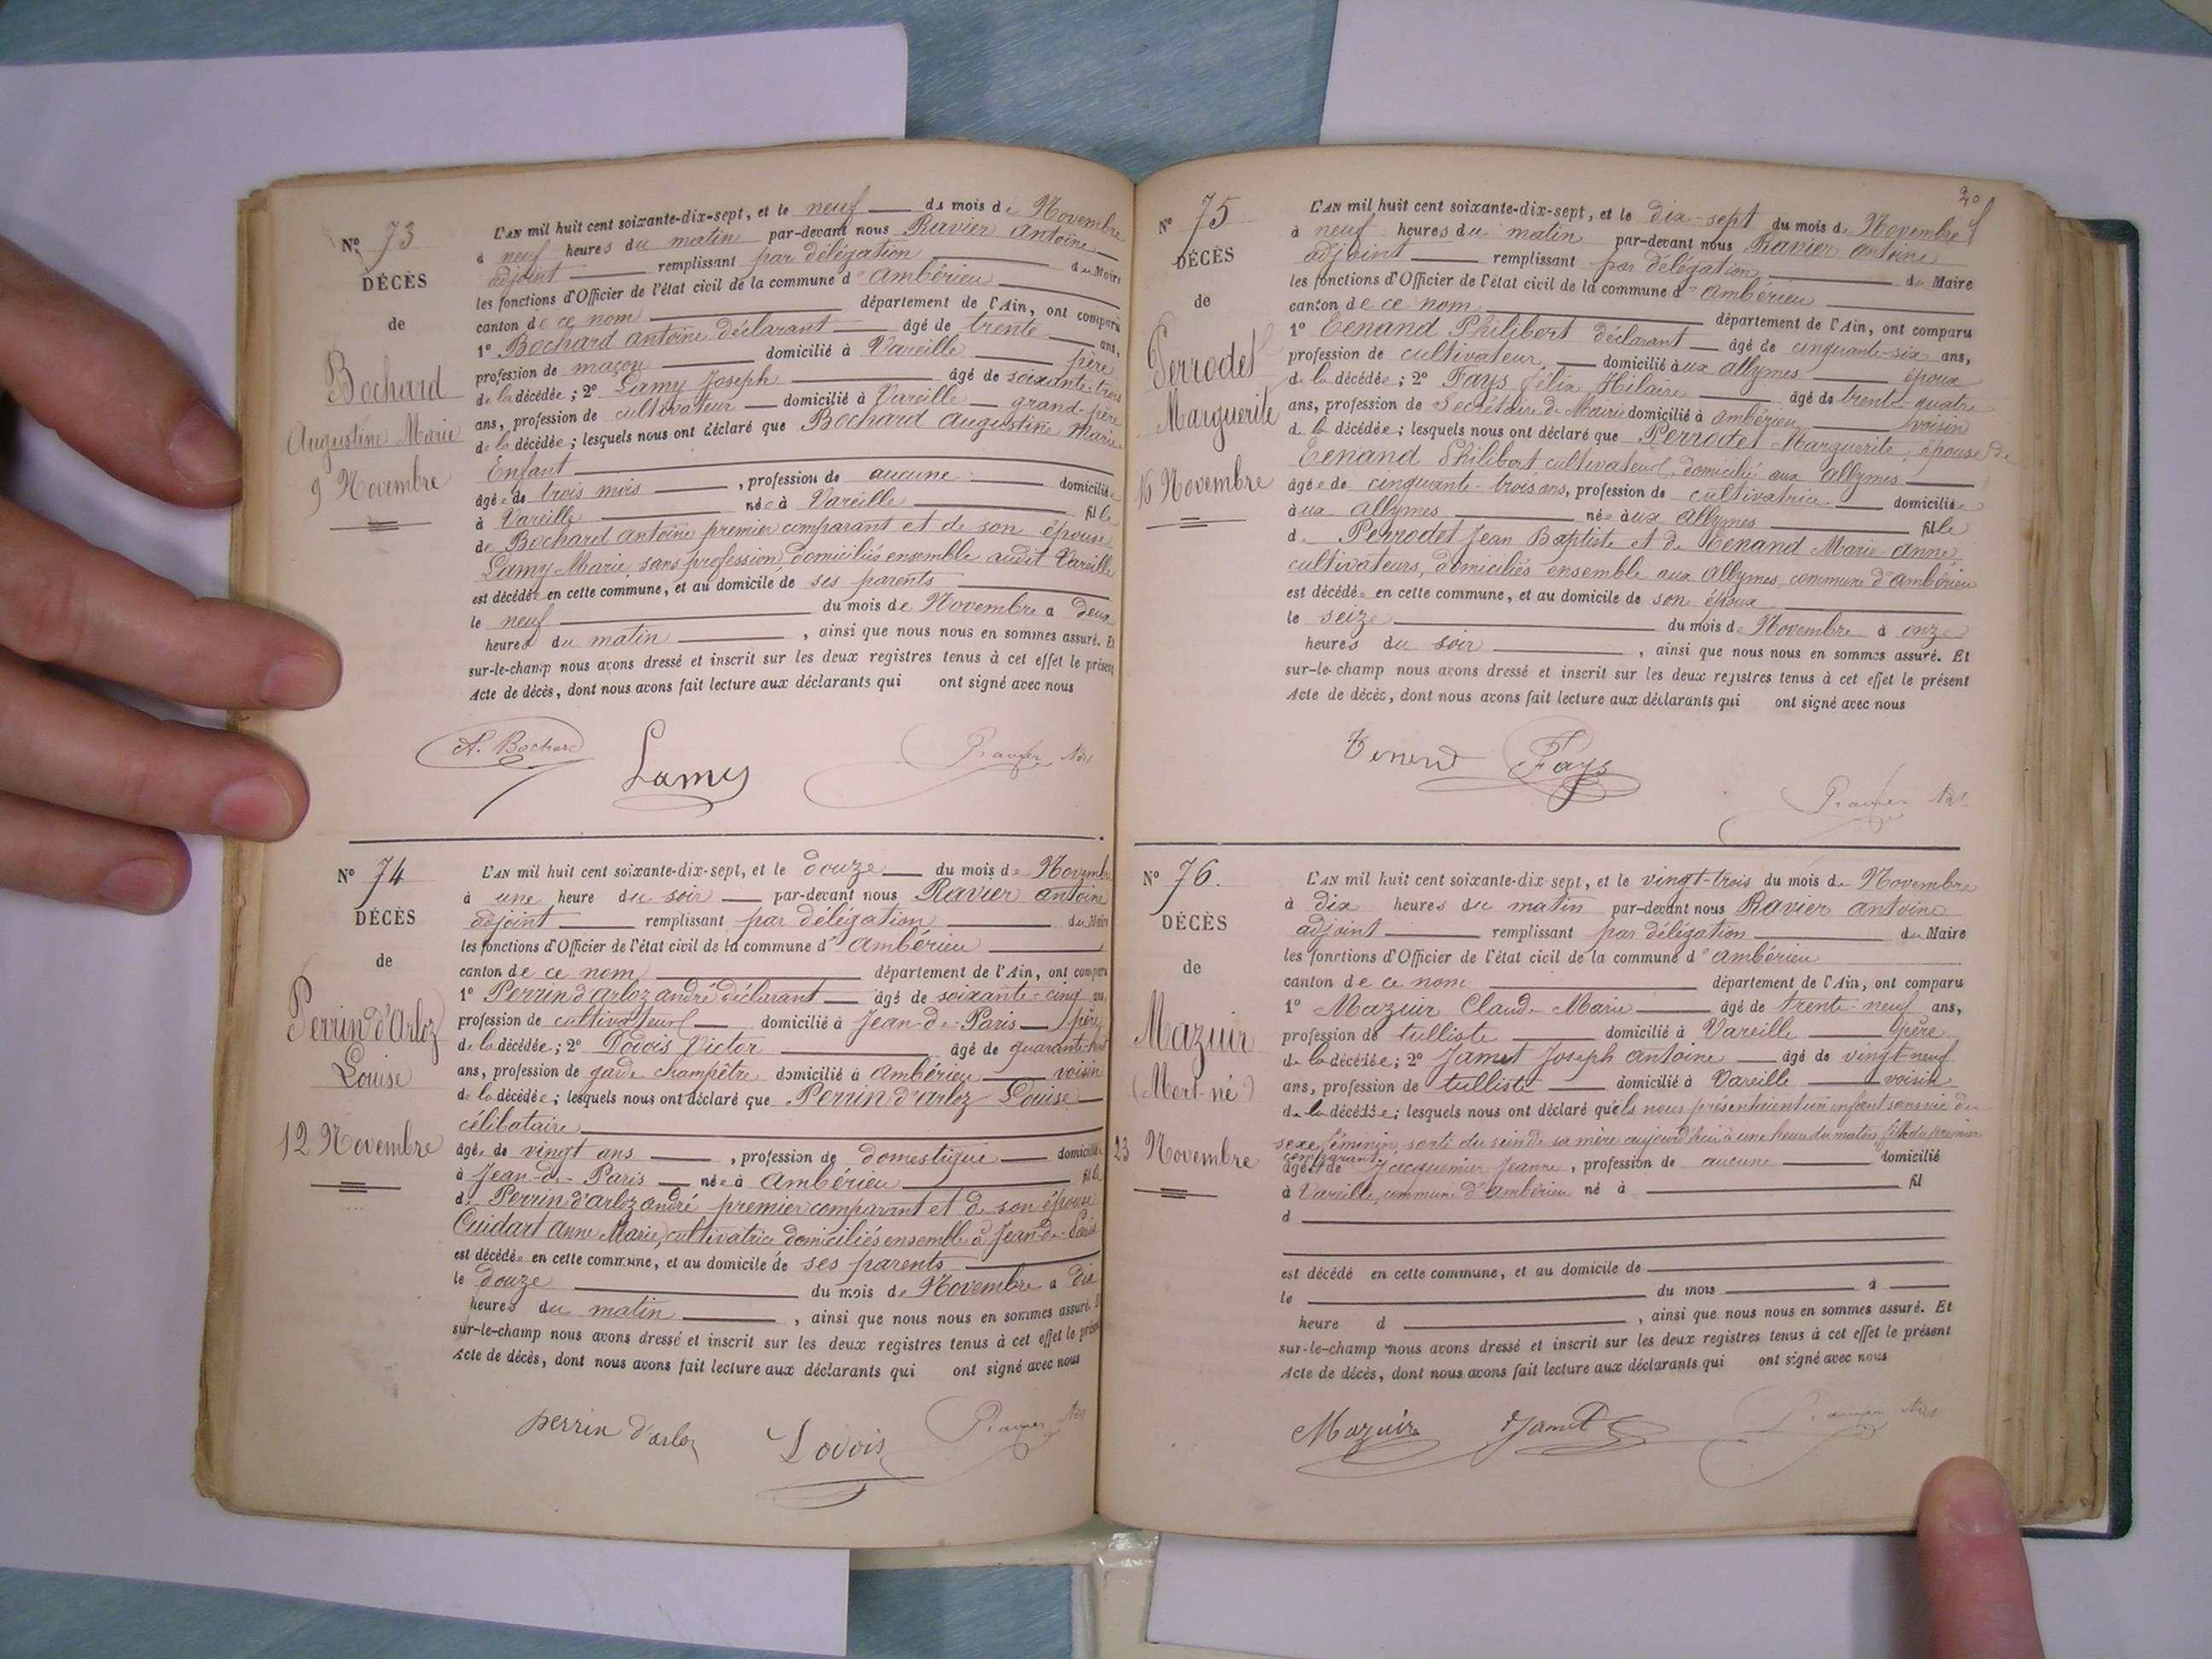 N° 73
DÉCÈS
de
Bochard
Augustine Marie
9 Novembre
L'AN mil huit cent soixante-dix-sept, et le neuf du mois de Novembre
à neuf heures du matin par-devant nous Ravier Antoine
adjoint remplissant par délégation du Maire
les fonctions d'Officier de l'état civil de la commune d'Ambérieu
canton de ce nom département de l'Ain, ont comparu
1° Bochard Antoine déclarant âgé de trente ans,
profession de maçon domicilié à Vareille père
de la décédée; 2° Lamy Joseph âgé de soixante-trois
ans, profession de cultivateur domicilié à Vareille grand-père
de la décédée; lesquels nous ont déclaré que Bochard Augustine Marie
Enfant
âgée de trois mois, profession de aucune domiciliée
à Vareille née à Vareille fille
de Bochard Antoine premier comparant et de son épouse
Lamy Marie, sans profession, domiciliés ensemble audit Vareille
est décédée en cette commune, et au domicile de ses parents
le neuf du mois de Novembre à deux
heures du matin, ainsi que nous nous en sommes assuré. Et
sur-le-champ nous avons dressé et inscrit sur les deux registres tenus à cet effet le présent
Acte de décès, dont nous avons fait lecture aux déclarants qui ont signé avec nous
A. Bochard Lamy Ravier
N° 74
DÉCÈS
de
Perrin d'Arloz
Louise
12 Novembre
L'AN mil huit cent soixante-dix-sept, et le douze du mois de Novembre
à une heure du soir par-devant nous Ravier Antoine
adjoint remplissant par délégation du Maire
les fonctions d'Officier de l'état civil de la commune d'Ambérieu
canton de ce nom département de l'Ain, ont comparu
1° Perrin d'arloz andré déclarant âgé de soixante-cinq ans,
profession de cultivateur domicilié à Jean-de-Paris père
de la décédée; 2° Dodois Victor âgé de quarante-huit
ans, profession de garde champêtre domicilié à Ambérieu voisin
de la décédée; lesquels nous ont déclaré que Perrin d'arloz Louise
célibataire
âgée de vingt ans, profession de domestique domiciliée
à Jean-de-Paris née à Ambérieu fille
de Perrin d'arloz andré premier comparant et de son épouse
Cuidart Anne Marie, cultivatrice domiciliés ensemble à Jean-de-Paris
est décédée en cette commune, et au domicile de ses parents
le douze du mois de Novembre à dix
heures du matin, ainsi que nous nous en sommes assuré. Et
sur-le-champ nous avons dressé et inscrit sur les deux registres tenus à cet effet le présent
Acte de décès, dont nous avons fait lecture aux déclarants qui ont signé avec nous
perrin d'arloz Dodois Ravier
N° 75
DÉCÈS
de
Perrodet
Marguerite
16 Novembre
L'AN mil huit cent soixante-dix-sept, et le dix-sept du mois de Novembre
à neuf heures du matin par-devant nous Ravier Antoine
adjoint remplissant par délégation du Maire
les fonctions d'Officier de l'état civil de la commune d'Ambérieu
canton de ce nom département de l'Ain, ont comparu
1° Tenand Philibert déclarant âgé de cinquante-six ans,
profession de cultivateur domicilié aux allymes époux
de la décédée; 2° Fays félix Hilaire âgé de trente-quatre
ans, profession de Secrétaire de Mairie domicilié à Ambérieu voisin
de la décédée; lesquels nous ont déclaré que Perrodet Marguerite, épouse de
Tenand Philibert cultivateur, domicilié aux allymes
âgée de cinquante-trois ans, profession de cultivatrice domiciliée
aux allymes née aux allymes fille
de Perrodet Jean Baptiste et de Tenand Marie Anne
cultivateurs, domiciliés ensemble aux Allymes, commune d'Ambérieu
est décédée en cette commune, et au domicile de son époux
le seize du mois de Novembre à onze
heures du soir, ainsi que nous nous en sommes assuré. Et
sur-le-champ nous avons dressé et inscrit sur les deux registres tenus à cet effet le présent
Acte de décès, dont nous avons fait lecture aux déclarants qui ont signé avec nous
Tenand Fays Ravier
N° 76.
DÉCÈS
de
Mazuir
(Mort-né)
23 Novembre
L'AN mil huit cent soixante-dix-sept, et le vingt-trois du mois de Novembre
à dix heures du matin par-devant nous Ravier antoine
adjoint remplissant par délégation du Maire
les fonctions d'Officier de l'état civil de la commune d'Ambérieu
canton de ce nom département de l'Ain, ont comparu
1° Mazuir Claude Marie âgé de trente-neuf ans,
profession de tulliste domicilié à Vareille père
de la décédée; 2° Jamet Joseph antoine âgé de vingt-neuf
ans, profession de tulliste domicilié à Vareille voisin
de la décédée; lesquels nous ont déclaré qu'ils nous présentaient un enfant sans vie du
sexe féminin, sorti du sein de sa mère aujourd'hui à une heure du matin, fille du premier
comparant
âgé et de Jacquemier Jeanne, profession de aucune domicilié
à Vareille, commune d'Ambérieu né à fil
d
est décédé en cette commune, et au domicile de
le du mois à
heure d, ainsi que nous nous en sommes assuré. Et
sur-le-champ nous avons dressé et inscrit sur les deux registres tenus à cet effet le présent
Acte de décès, dont nous avons fait lecture aux déclarants qui ont signé avec nous
Mazuir Jamet Ravier